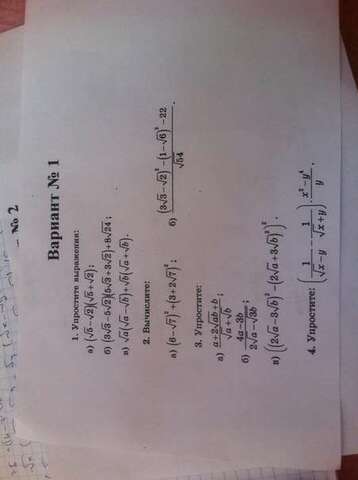 № 2
Вариант № 1
1. Упростите выражения:
а) (√5−√2)(√5+√2);
б) (3√3−5√2)(5√3+3√2)+8√24;
в) √a(√a−√b)+√b(√a+√b).
2. Вычислите:
а) (6−√7)²+(3+2√7)²;
б) ((3√3−√2)²−(1−√6)²−22)/√54.
3. Упростите:
а) (a+2√ab+b)/(√a+√b)
б) (4a−3b)/(2√a−√3b);
в) ((2√a−3√b)²−(2√a+3√b)²)².
4. Упростите: (1/(√x−y) − 1/(√x+y))·(x²−y⁴)/y.